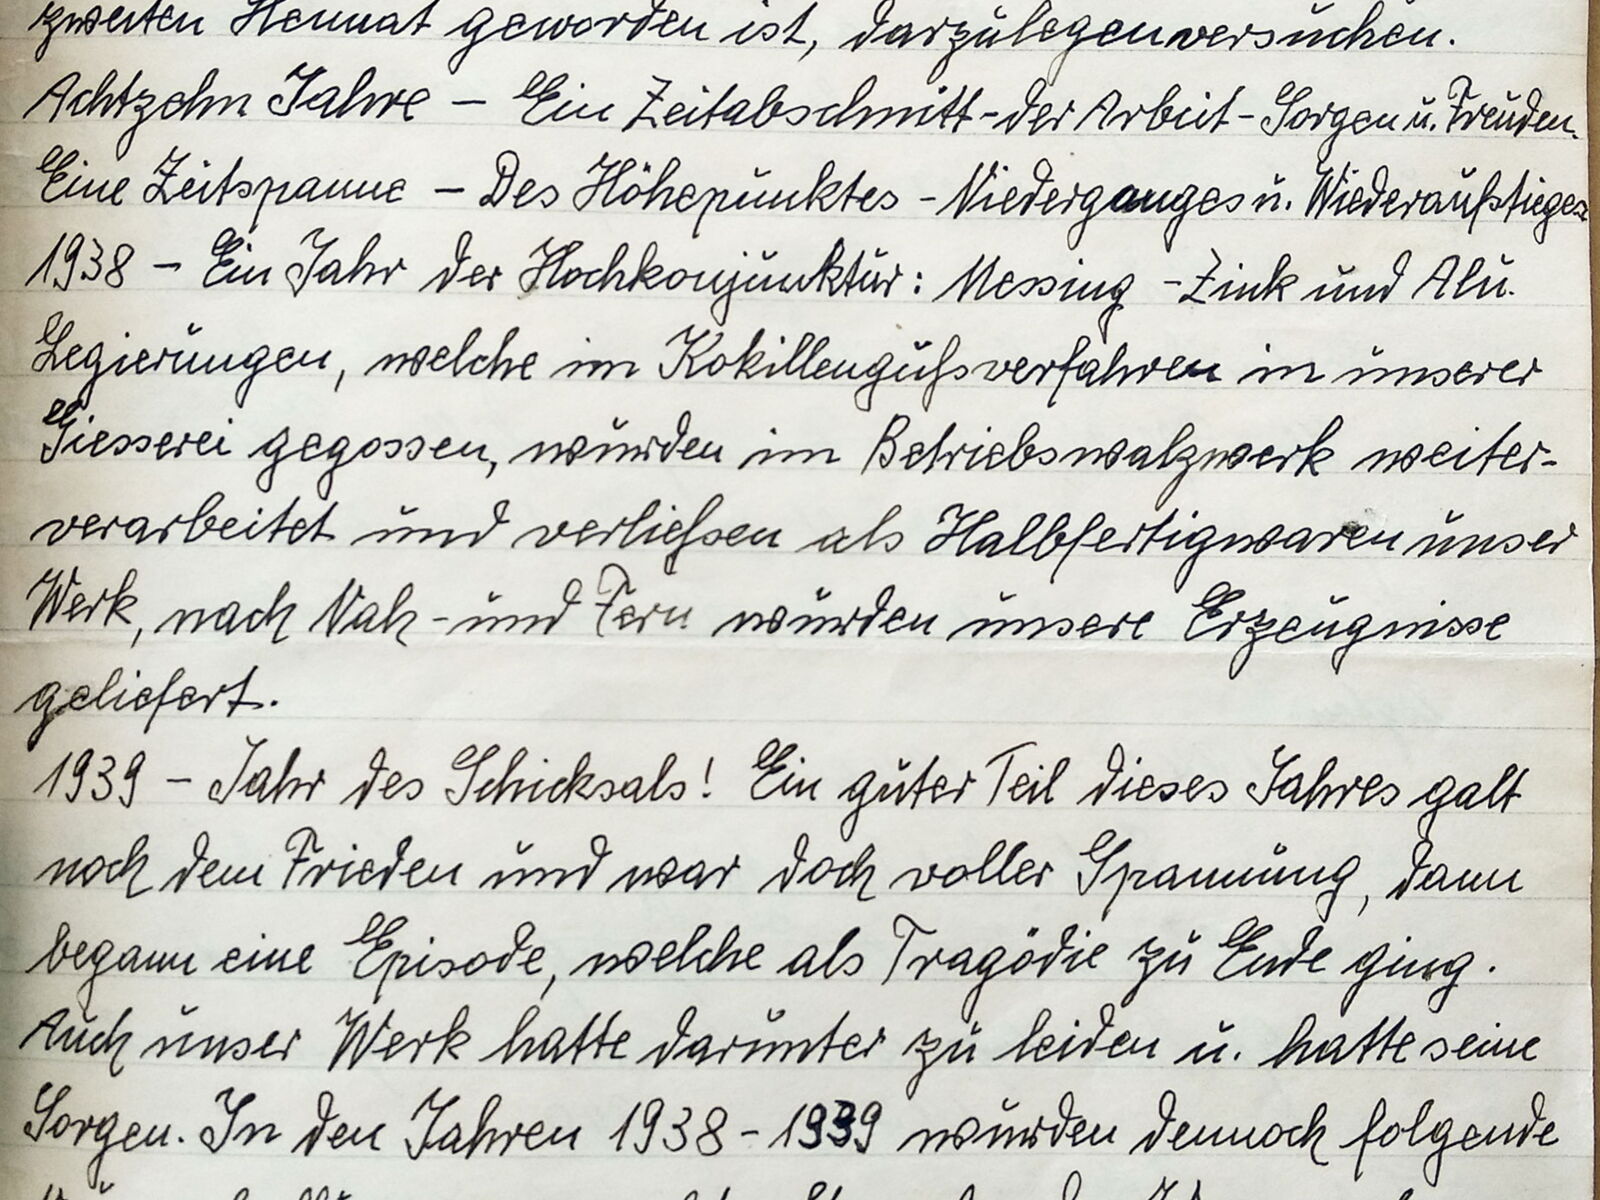 zweiten Heimat geworden ist, darzulegen versuchen.
Achtzehn Jahre – Ein Zeitabschnitt - der Arbeit - Sorgen u. Freuden.
Eine Zeitspanne – Des Höhepunktes - Niederganges u. Wiederaufstieges
1938 – Ein Jahr der Hochkonjunktur: Messing - Zink und Alu.
Legierungen, welche im Kokillengußverfahren in unserer
Giesserei gegossen, wurden im Betriebswalzwerk weiter-
verarbeitet und verließen als Halbfertigwaren unser
Werk, nach Nah - und Fern wurden unsere Erzeugnisse
geliefert.
1939 – Jahr des Schicksals! Ein guter Teil dieses Jahres galt
noch dem Frieden und war doch voller Spannung, dann
begann eine Episode, welche als Tragödie zu Ende ging.
Auch unser Werk hatte darunter zu leiden u. hatte seine
Sorgen. In den Jahren 1938 - 1939 wurden dennoch folgende